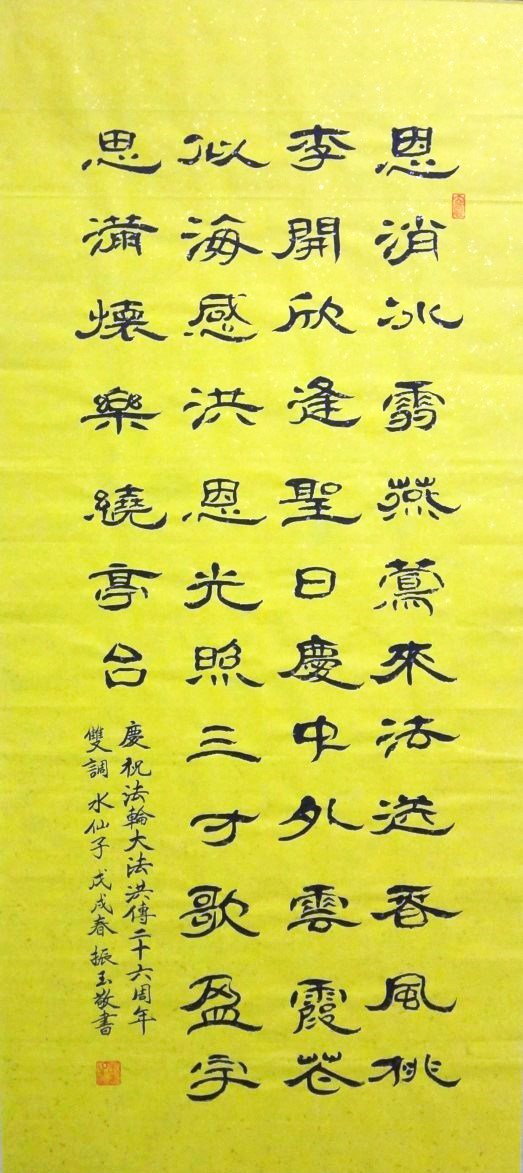 恩消冰雪燕鶯來法送春風桃
李開欣逢聖日慶中外雲霞花
似海感洪恩光照三才歌盈宇
思滿懷樂繞亭台
慶祝法輪大法洪傳二十六周年
雙調 水仙子 戊戌春 振玉敬書